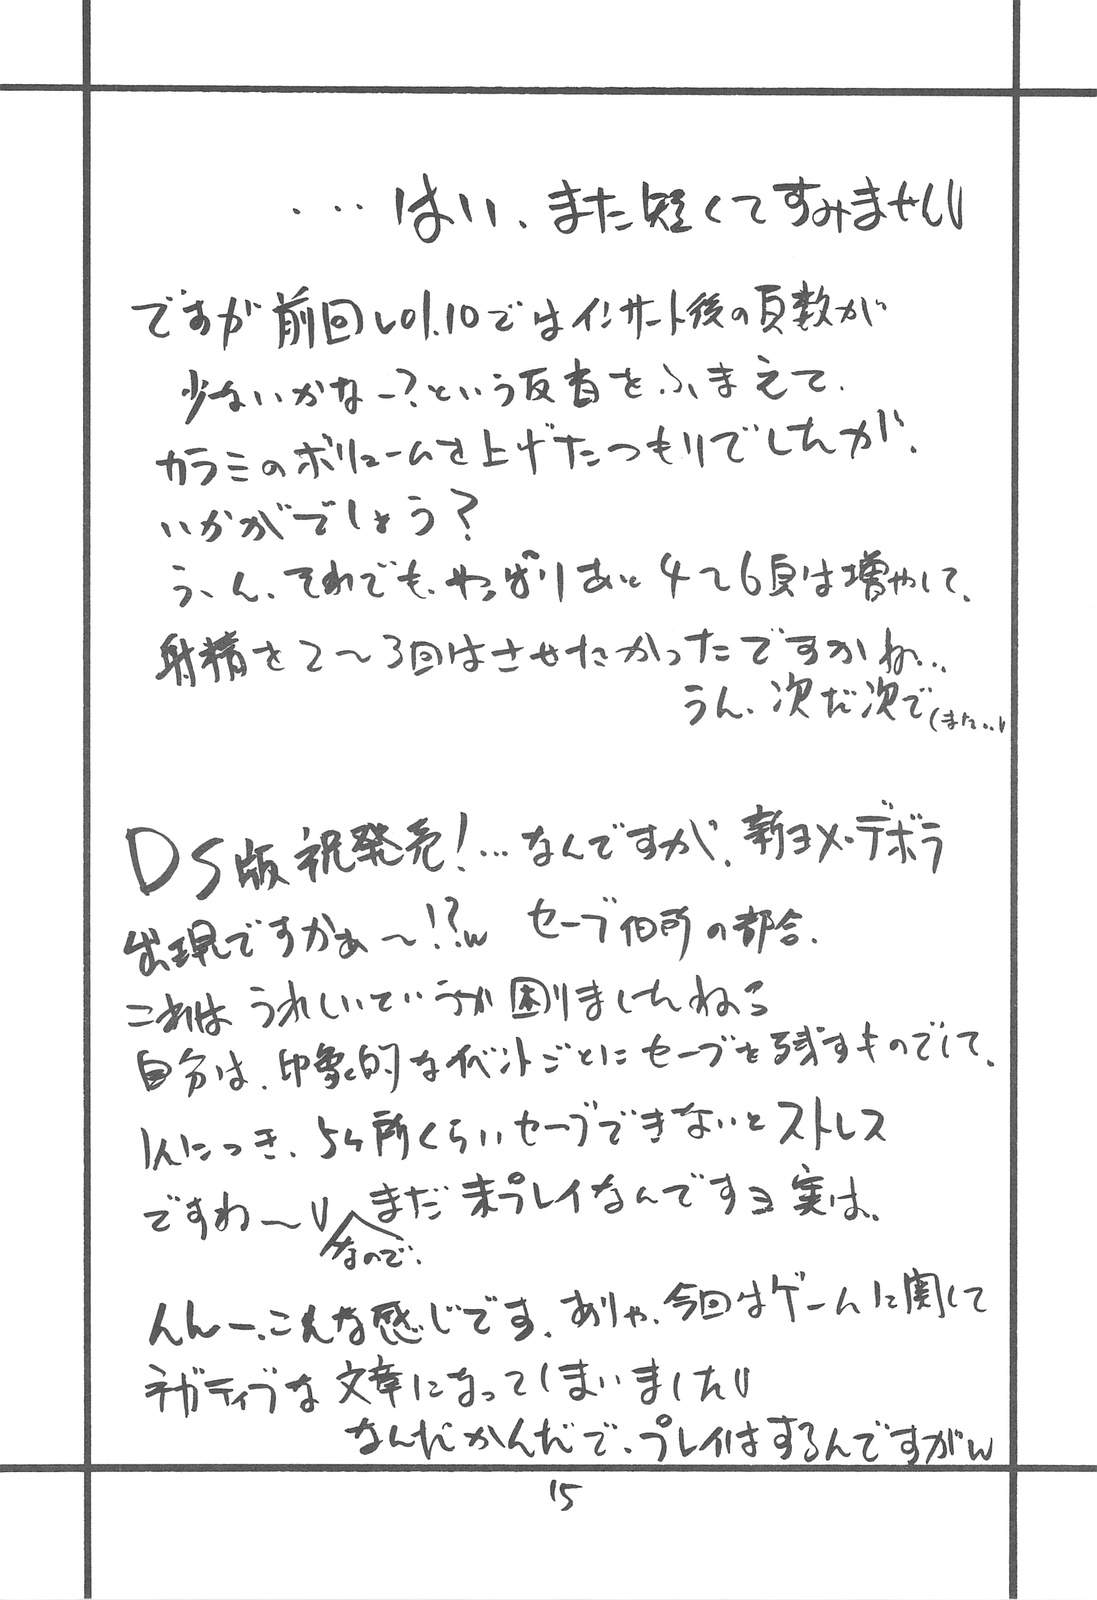 …はい、また短くてすみません
ですが前回vol.10ではインサート後の頁数が
少ないかなー?という反省をふまえて、
カラミのボリュームを上げたつもりでしたが、
いかがでしょう?
う、ん、それでも、やっぱりあと4〜6頁は増やして、
射精を2〜3回はさせたかったですかね…
うん、次だ次で(また…
DS版祝発売!…なんですが、新ヨメ・デボラ
出現ですかぁ〜!?w セーブ個所の都合、
これは うれしいていうか 困りましたねぇ
自分は、印象的なイベントごとにセーブを残すものでして、
1人につき、5ヶ所くらいセーブできないとストレス
ですわ〜 まだ未プレイなんですヨ実は。
なので、
んんー、こんな感じです、ありゃ、今回はゲームに関して
ネガティブな文章になってしまいました
なんだかんだで、プレイはするんですがw
15